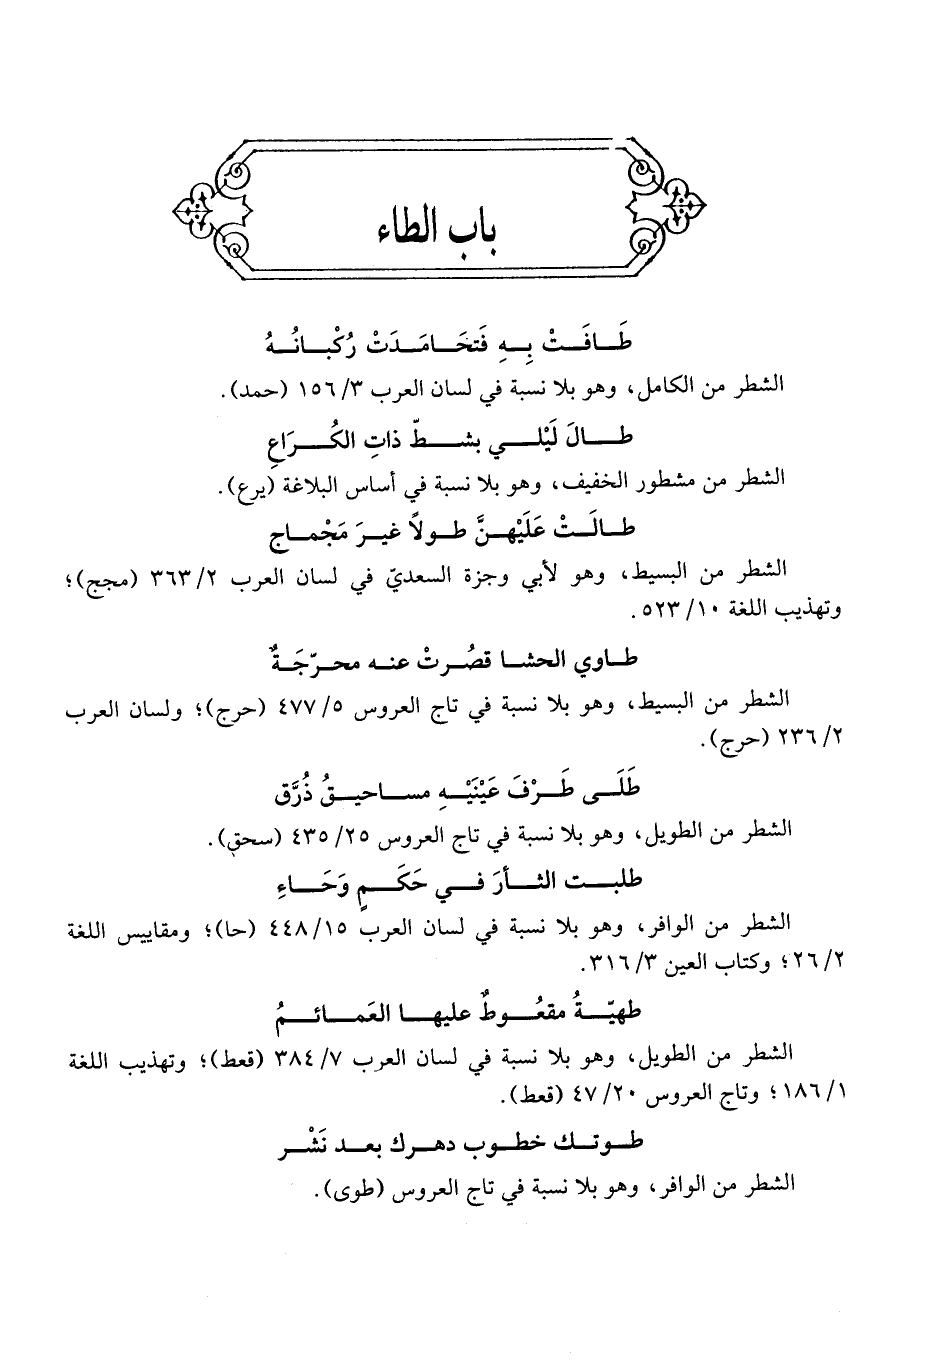 باب الطاء
طَافَتْ بِهِ فَتَحَامَدَتْ رُكْبَانُهُ
الشطر من الكامل، وهو بلا نسبة في لسان العرب ١٥٦/٣ (حمد).
طالَ لَيْلي بشطّ ذاتِ الكُرَاعِ
الشطر من مشطور الخفيف، وهو بلا نسبة في أساس البلاغة (يرع).
طالَتْ عَلَيْهنَّ طولاً غيرَ مَجْماج
الشطر من البسيط، وهو لأبي وجزة السعديّ في لسان العرب ٣٦٣/٢ (مجج)؛
وتهذيب اللغة ٥٢٣/١٠.
طاوي الحشا قصُرتْ عنه محرّجَةٌ
الشطر من البسيط، وهو بلا نسبة في تاج العروس ٤٧٧/٥ (حرج)؛ ولسان العرب
٢٣٦/٢ (حرج).
طَلَى طَرْفَ عَيْنَيْهِ مساحيقُ ذُرَّق
الشطر من الطويل، وهو بلا نسبة في تاج العروس ٤٣٥/٢٥ (سحق).
طلبت الثأرَ في حَكَمٍ وَحَاءِ
الشطر من الوافر، وهو بلا نسبة في لسان العرب ٤٤٨/١٥ (حا)؛ ومقاييس اللغة
٢٦/٢؛ وكتاب العين ٣١٦/٣.
طهيّةُ مقعُوطٌ عليها العَمائمُ
الشطر من الطويل، وهو بلا نسبة في لسان العرب ٣٨٤/٧ (قعط)؛ وتهذيب اللغة
١٨٦/١؛ وتاج العروس ٤٧/٢٠ (قعط).
طوتك خطوب دهرك بعد نَشْر
الشطر من الوافر، وهو بلا نسبة في تاج العروس (طوى).